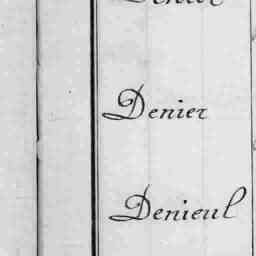 Denier
Denieul